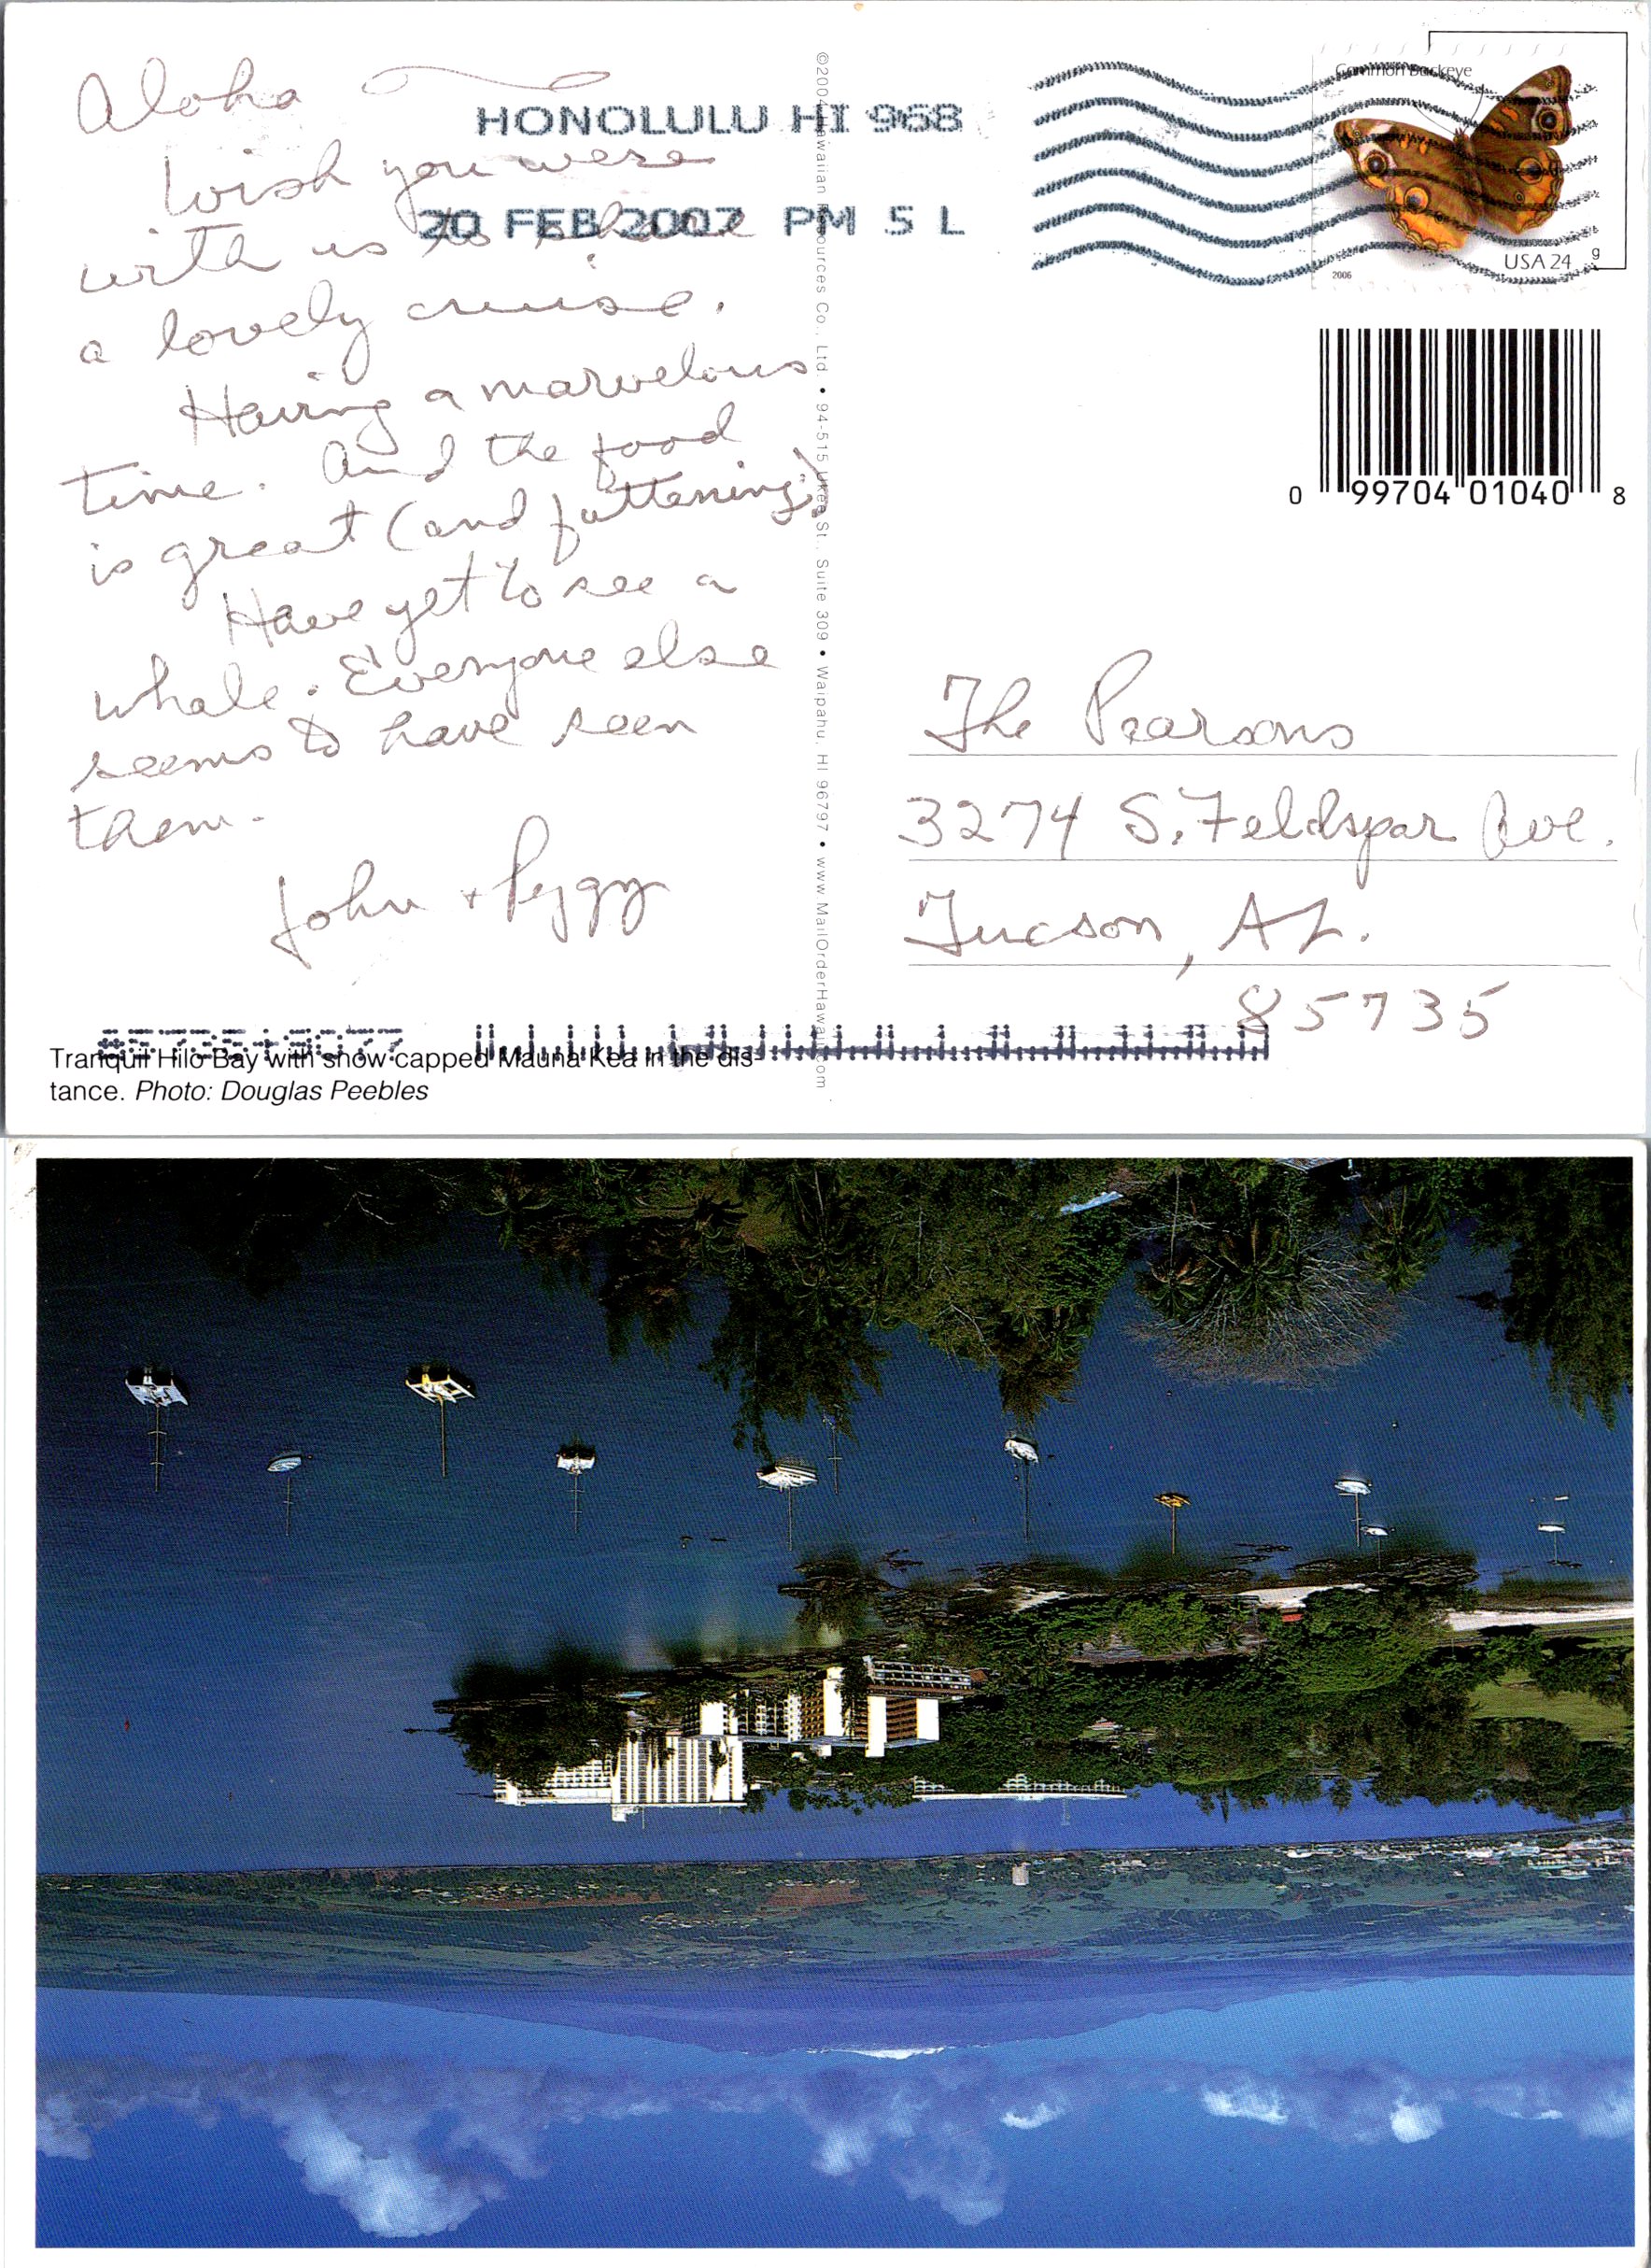 Aloha
HONOLULU HI 968
Wish you were
20 FEB 2007 PM 5 L
with us to share
a lovely cruise.
Having a marvelous
time. And the food
is great (and fattening).
Have yet to see a
whale. Everyone else
seems to have seen
them.
John + Peggy
©2004 Hawaiian Resources Co., Ltd. • 94-515 Ukee St., Suite 309 • Waipahu, HI 96797 • www.MailOrderHawaii.com
Common Buckeye
2006
USA 24
0 99704 01040 8
The Pearsons
3274 S. Feldspar Ave.
Tucson, AZ.
85735
Tranquil Hilo Bay with snow-capped Mauna Kea in the dis-
tance. Photo: Douglas Peebles